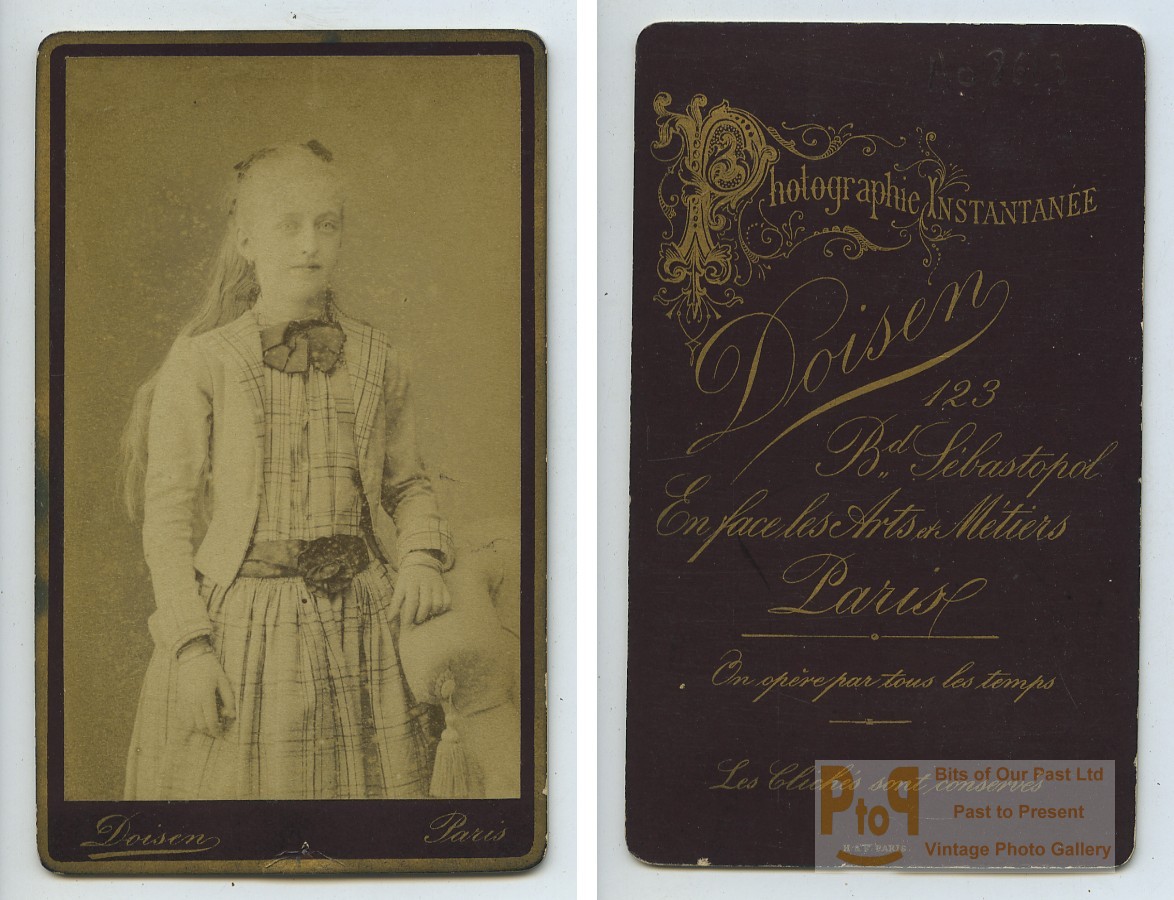 Doisen Paris
Photographie INSTANTANÉE
Doisen
123
Bd Sébastopol
En face les Arts et Métiers
Paris
On opère par tous les temps
Les Clichés sont conservés
PtoP
Bits of Our Past Ltd
Past to Present
Vintage Photo Gallery
PARIS.